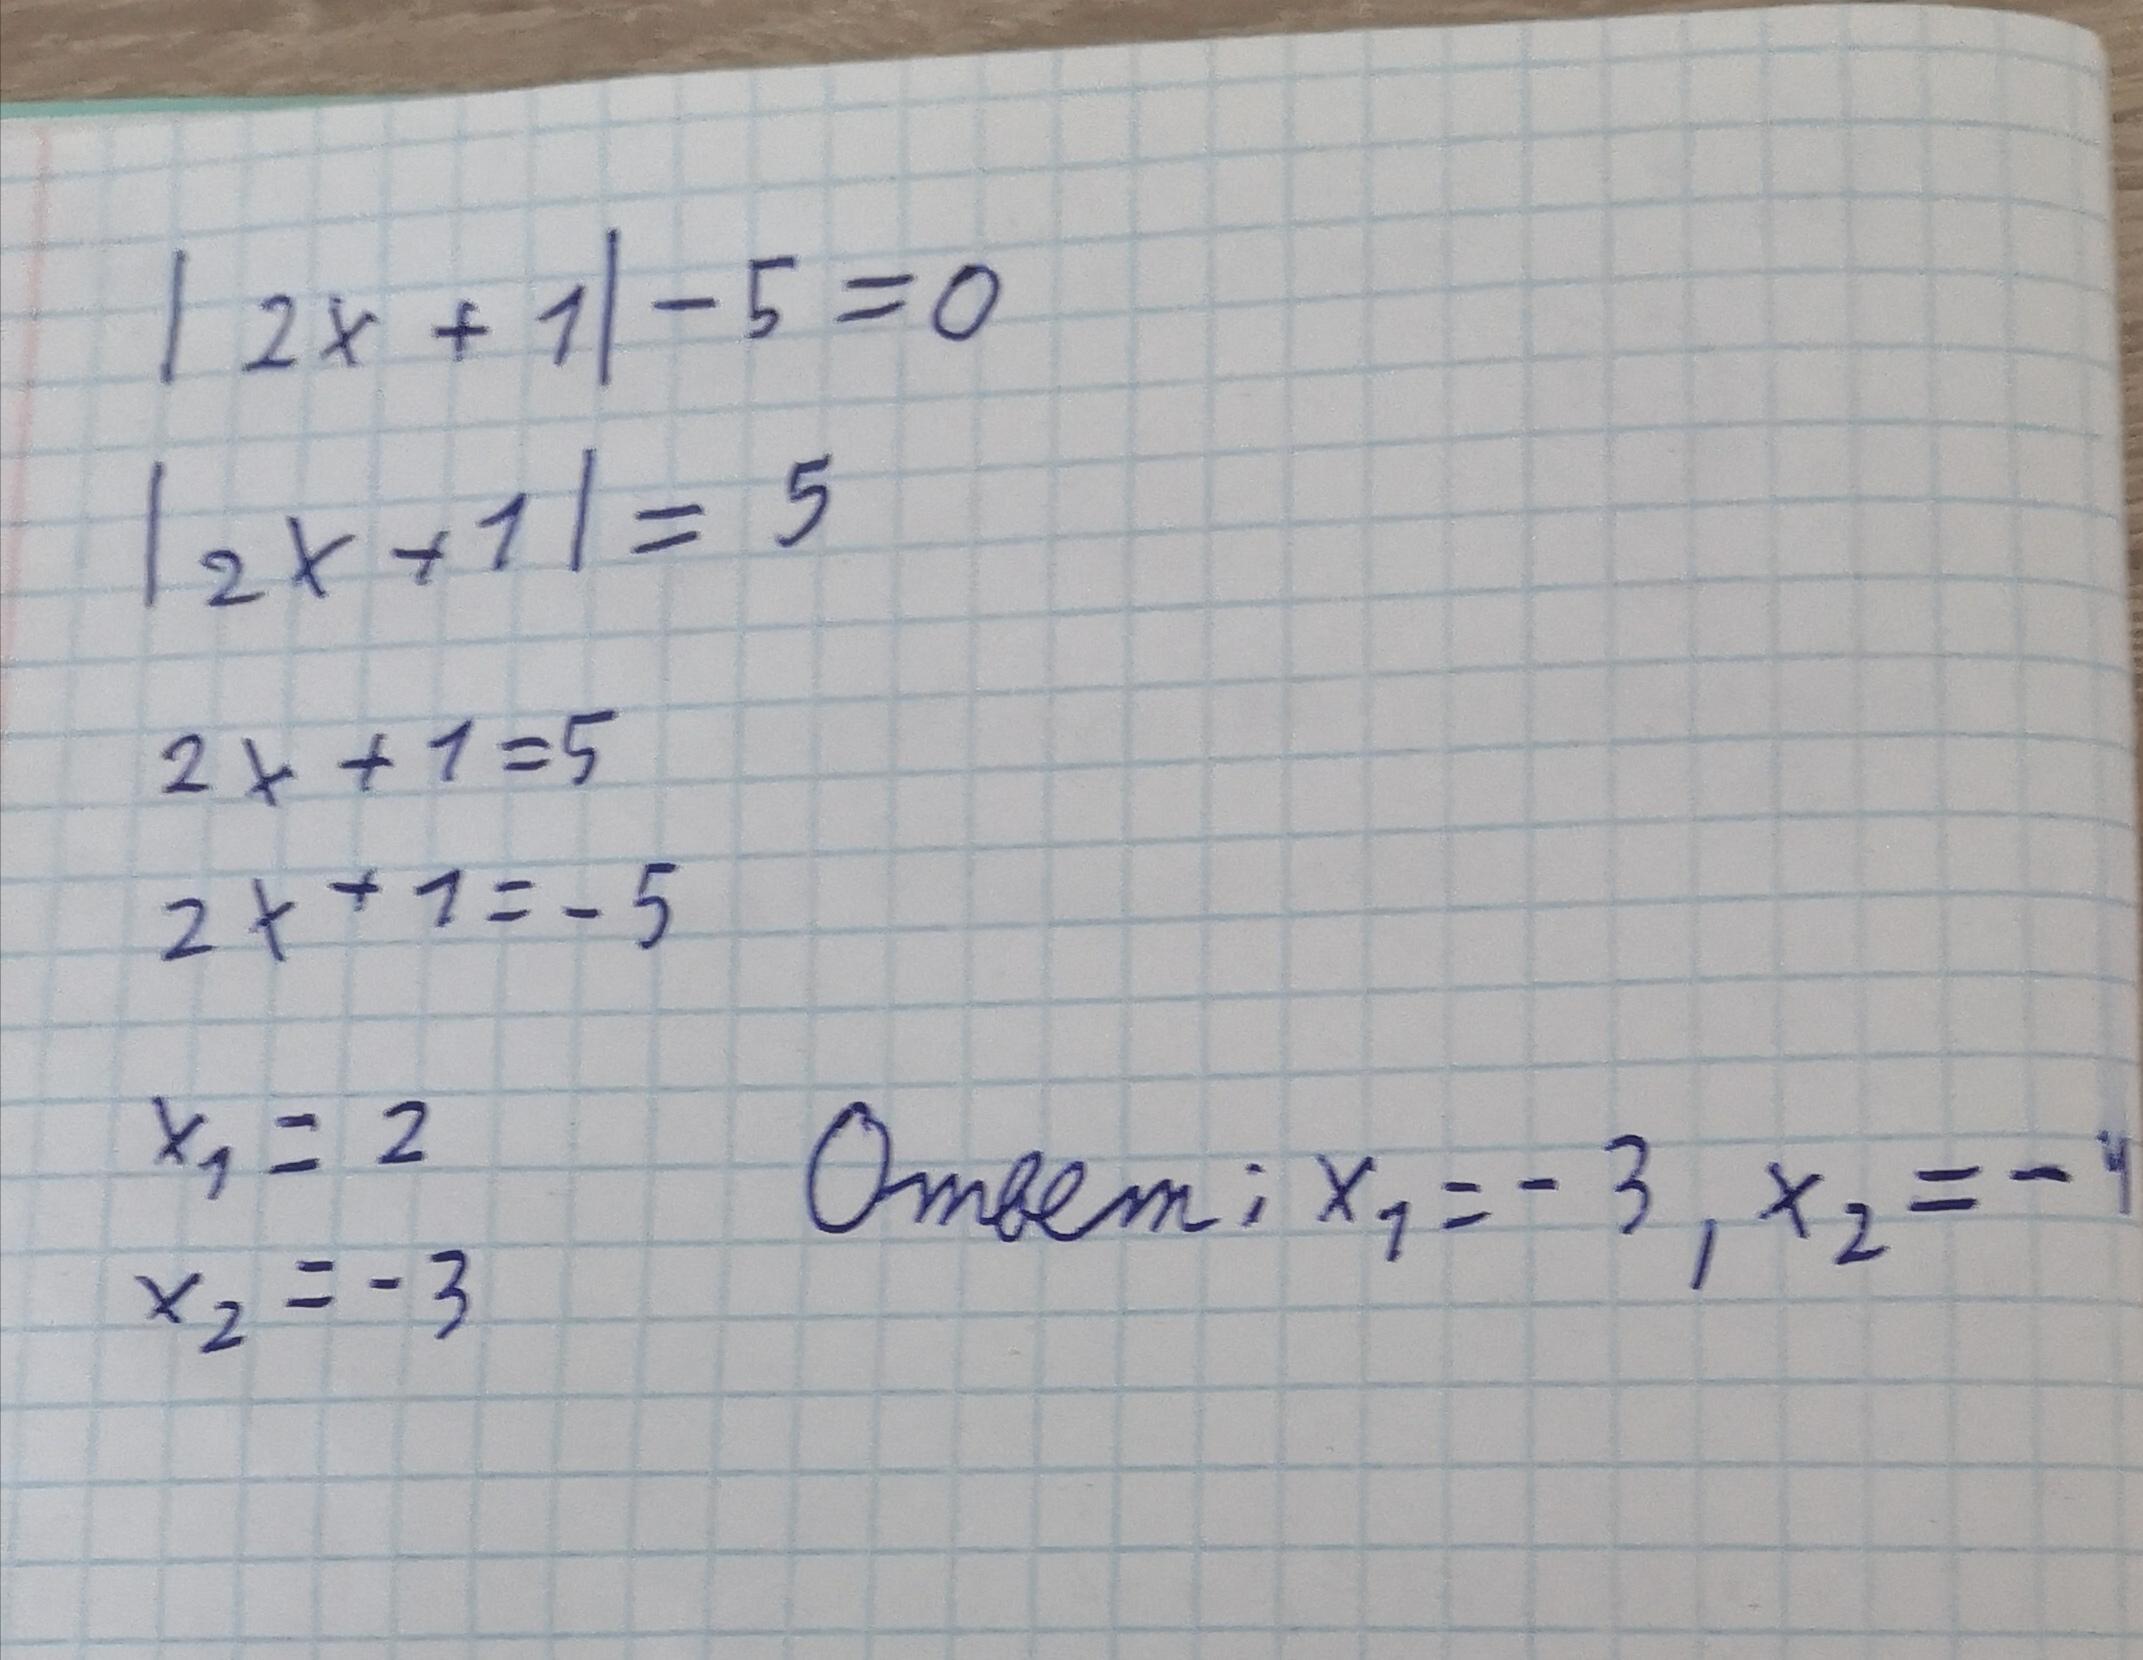 |2x + 1| - 5 = 0
|2x + 1| = 5
2x + 1 = 5
2x + 1 = -5
x₁ = 2
Ответ: x₁ = -3, x₂ = -4
x₂ = -3